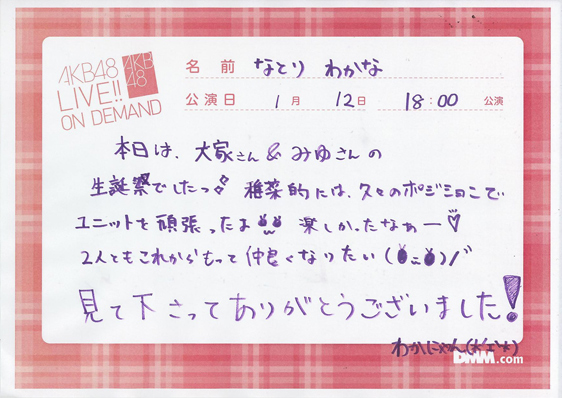 AKB48
LIVE!!
ON DEMAND
AKB
48
名前 なとり わかな
公演日 1月 12日 18:00 公演
本日は、大家さん&みゆさんの
生誕祭でしたっ 稚菜的には、久々のポジションで
ユニットを頑張ったよ 楽しかったなぁー♡
2人ともこれからもって仲良くなりたい
見て下さってありがとうございました!
わかにゃん
DMM.com